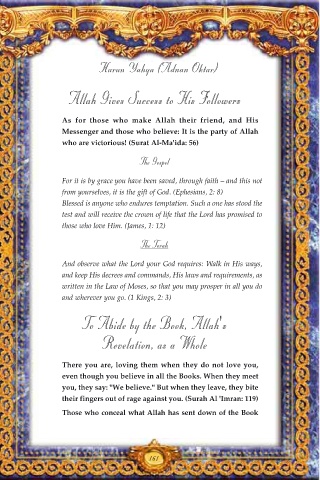 Harun Yahya (Adnan Oktar)
Allah Gives Success to His Followers
As for those who make Allah their friend, and His
Messenger and those who believe: It is the party of Allah
who are victorious! (Surat Al-Ma'ida: 56)
The Gospel
For it is by grace you have been saved, through faith – and this not
from yourselves, it is the gift of God. (Ephesians, 2: 8)
Blessed is anyone who endures temptation. Such a one has stood the
test and will receive the crown of life that the Lord has promised to
those who love Him. (James, 1: 12)
The Torah
And observe what the Lord your God requires: Walk in His ways,
and keep His decrees and commands, His laws and requirements, as
written in the Law of Moses, so that you may prosper in all you do
and wherever you go. (1 Kings, 2: 3)
To Abide by the Book, Allah's
Revelation, as a Whole
There you are, loving them when they do not love you,
even though you believe in all the Books. When they meet
you, they say: "We believe." But when they leave, they bite
their fingers out of rage against you. (Surah Al 'Imran: 119)
Those who conceal what Allah has sent down of the Book
161